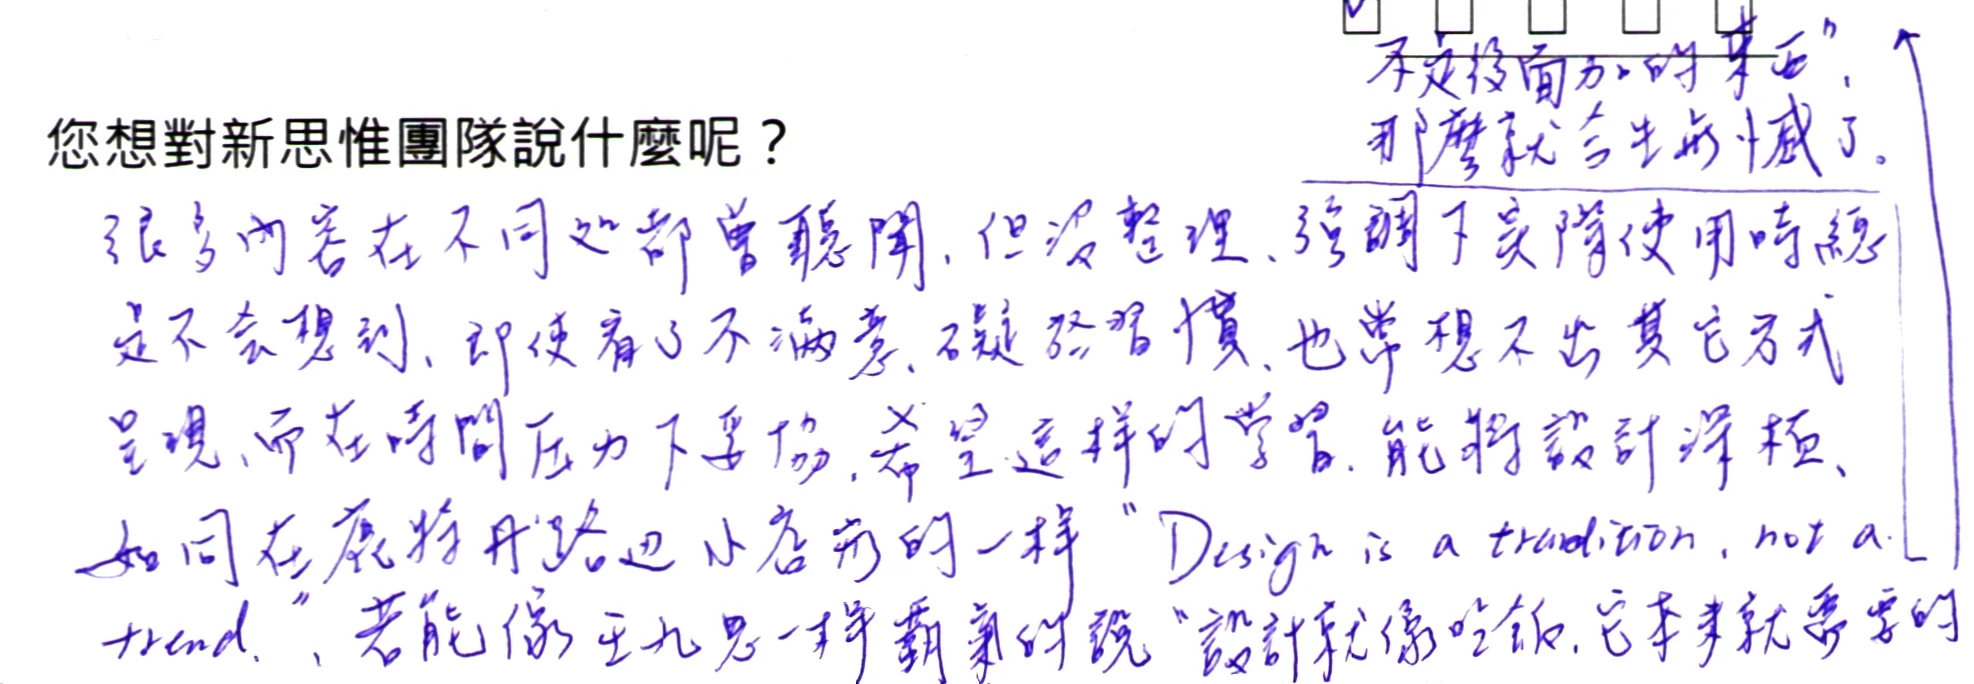 您想對新思惟團隊說什麼呢？
很多內容在不同处都曾聽聞，但沒整理、強調下実際使用時總
是不会想到、即使有了不滿意、礙於習慣、也常想不出其它方式
呈現、而在時間压力下妥協，希望這样的学習，能將設計深植、
如同在鹿特丹路边小店所的一样 "Design is a tradition, not a
trend."、若能像王九思一样霸氣的說"設計就像吃飯，它本來就需要的
不是後面加的東西"，
那麼就今生無憾了。